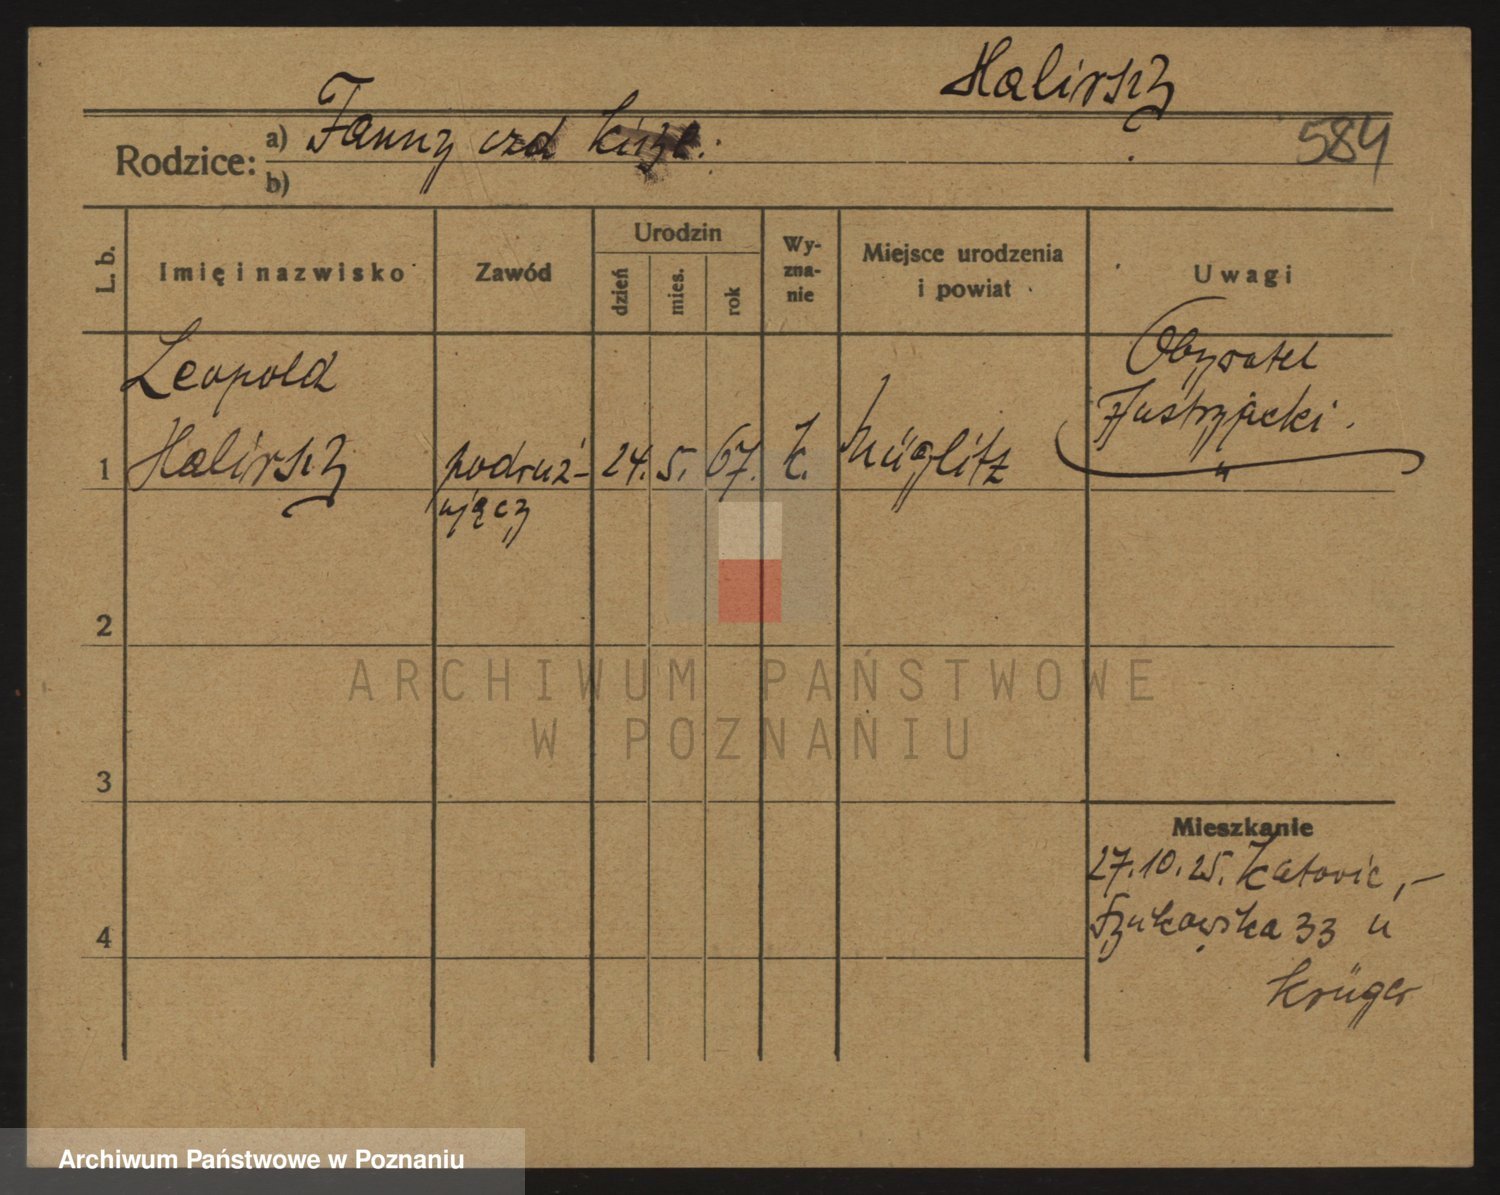 Halirsch
584
Rodzice: a) Fanny
b)
L. b.
Imię i nazwisko
Zawód
Urodzin
dzień
mies.
rok
Wy-
zna-
nie
Miejsce urodzenia
i powiat
Uwagi
Leopold
1 Halirsch podruż- 24. 5. 67. k. Müglitz
ujący
Obywatel
Austryjacki.
2
3
4
Mieszkanie
27.10.25. Katovic,-
33 u
Krüger
ARCHIWUM PAŃSTWOWE
W POZNANIU
Archiwum Państwowe w Poznaniu